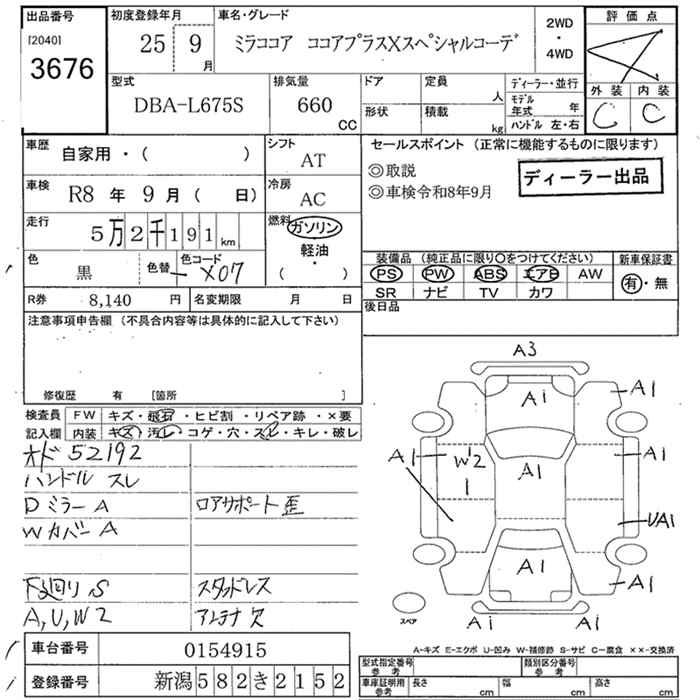 出品番号
[2040]
3676
初度登録年月
25 9月
車名・グレード
ミラココア ココアプラスXスペシャルコーデ
2WD
・
4WD
評価点
4
外装 内装
C C
型式
DBA-L675S
排気量
660
CC
ドア
形状
定員
人
積載
kg
ディーラー・並行
モデル年式 年
ハンドル 左・右
車歴
自家用・( )
シフト
AT
車検
R8年9月( 日)
冷房
AC
走行
5万2千191km
燃料
ガソリン
軽油・
( )
色
黒
色替
色コード
X07
R券 8,140 円
名変期限 月 日
セールスポイント (正常に機能するものに限ります)
◎取説
◎車検令和8年9月
ディーラー出品
装備品 (純正品に限り〇をつけてください)
PS PW ABS エアB AW
SR ナビ TV カワ
新車保証書
有・無
後日品
注意事項申告欄 (不具合内容等は具体的に記入して下さい)
修復歴 有 [箇所 ]
検査員記入欄
FW キズ・飛石・ヒビ割・リペア跡・×要
内装 キズ・汚レ・コゲ・穴・スレ・キレ・破レ
オド 52192
ハンドル スレ
Dミラー A
ロアサポート 歪
Wカバー A
下廻り S
スタッドレス
A,U,W2
アンテナ欠
A3
A1
A1
A1
W2
1
A1
A1
UA1
A1
A1
A1
A1
スペア
A-キズ E-エクボ U-凹み W-補修跡 S-サビ C-腐食 ××-交換済
車台番号 0154915
登録番号 新潟582き2152
型式指定番号
参考
類別区分番号
参考
車庫証明用
参考
長さ cm
幅 cm
高さ cm